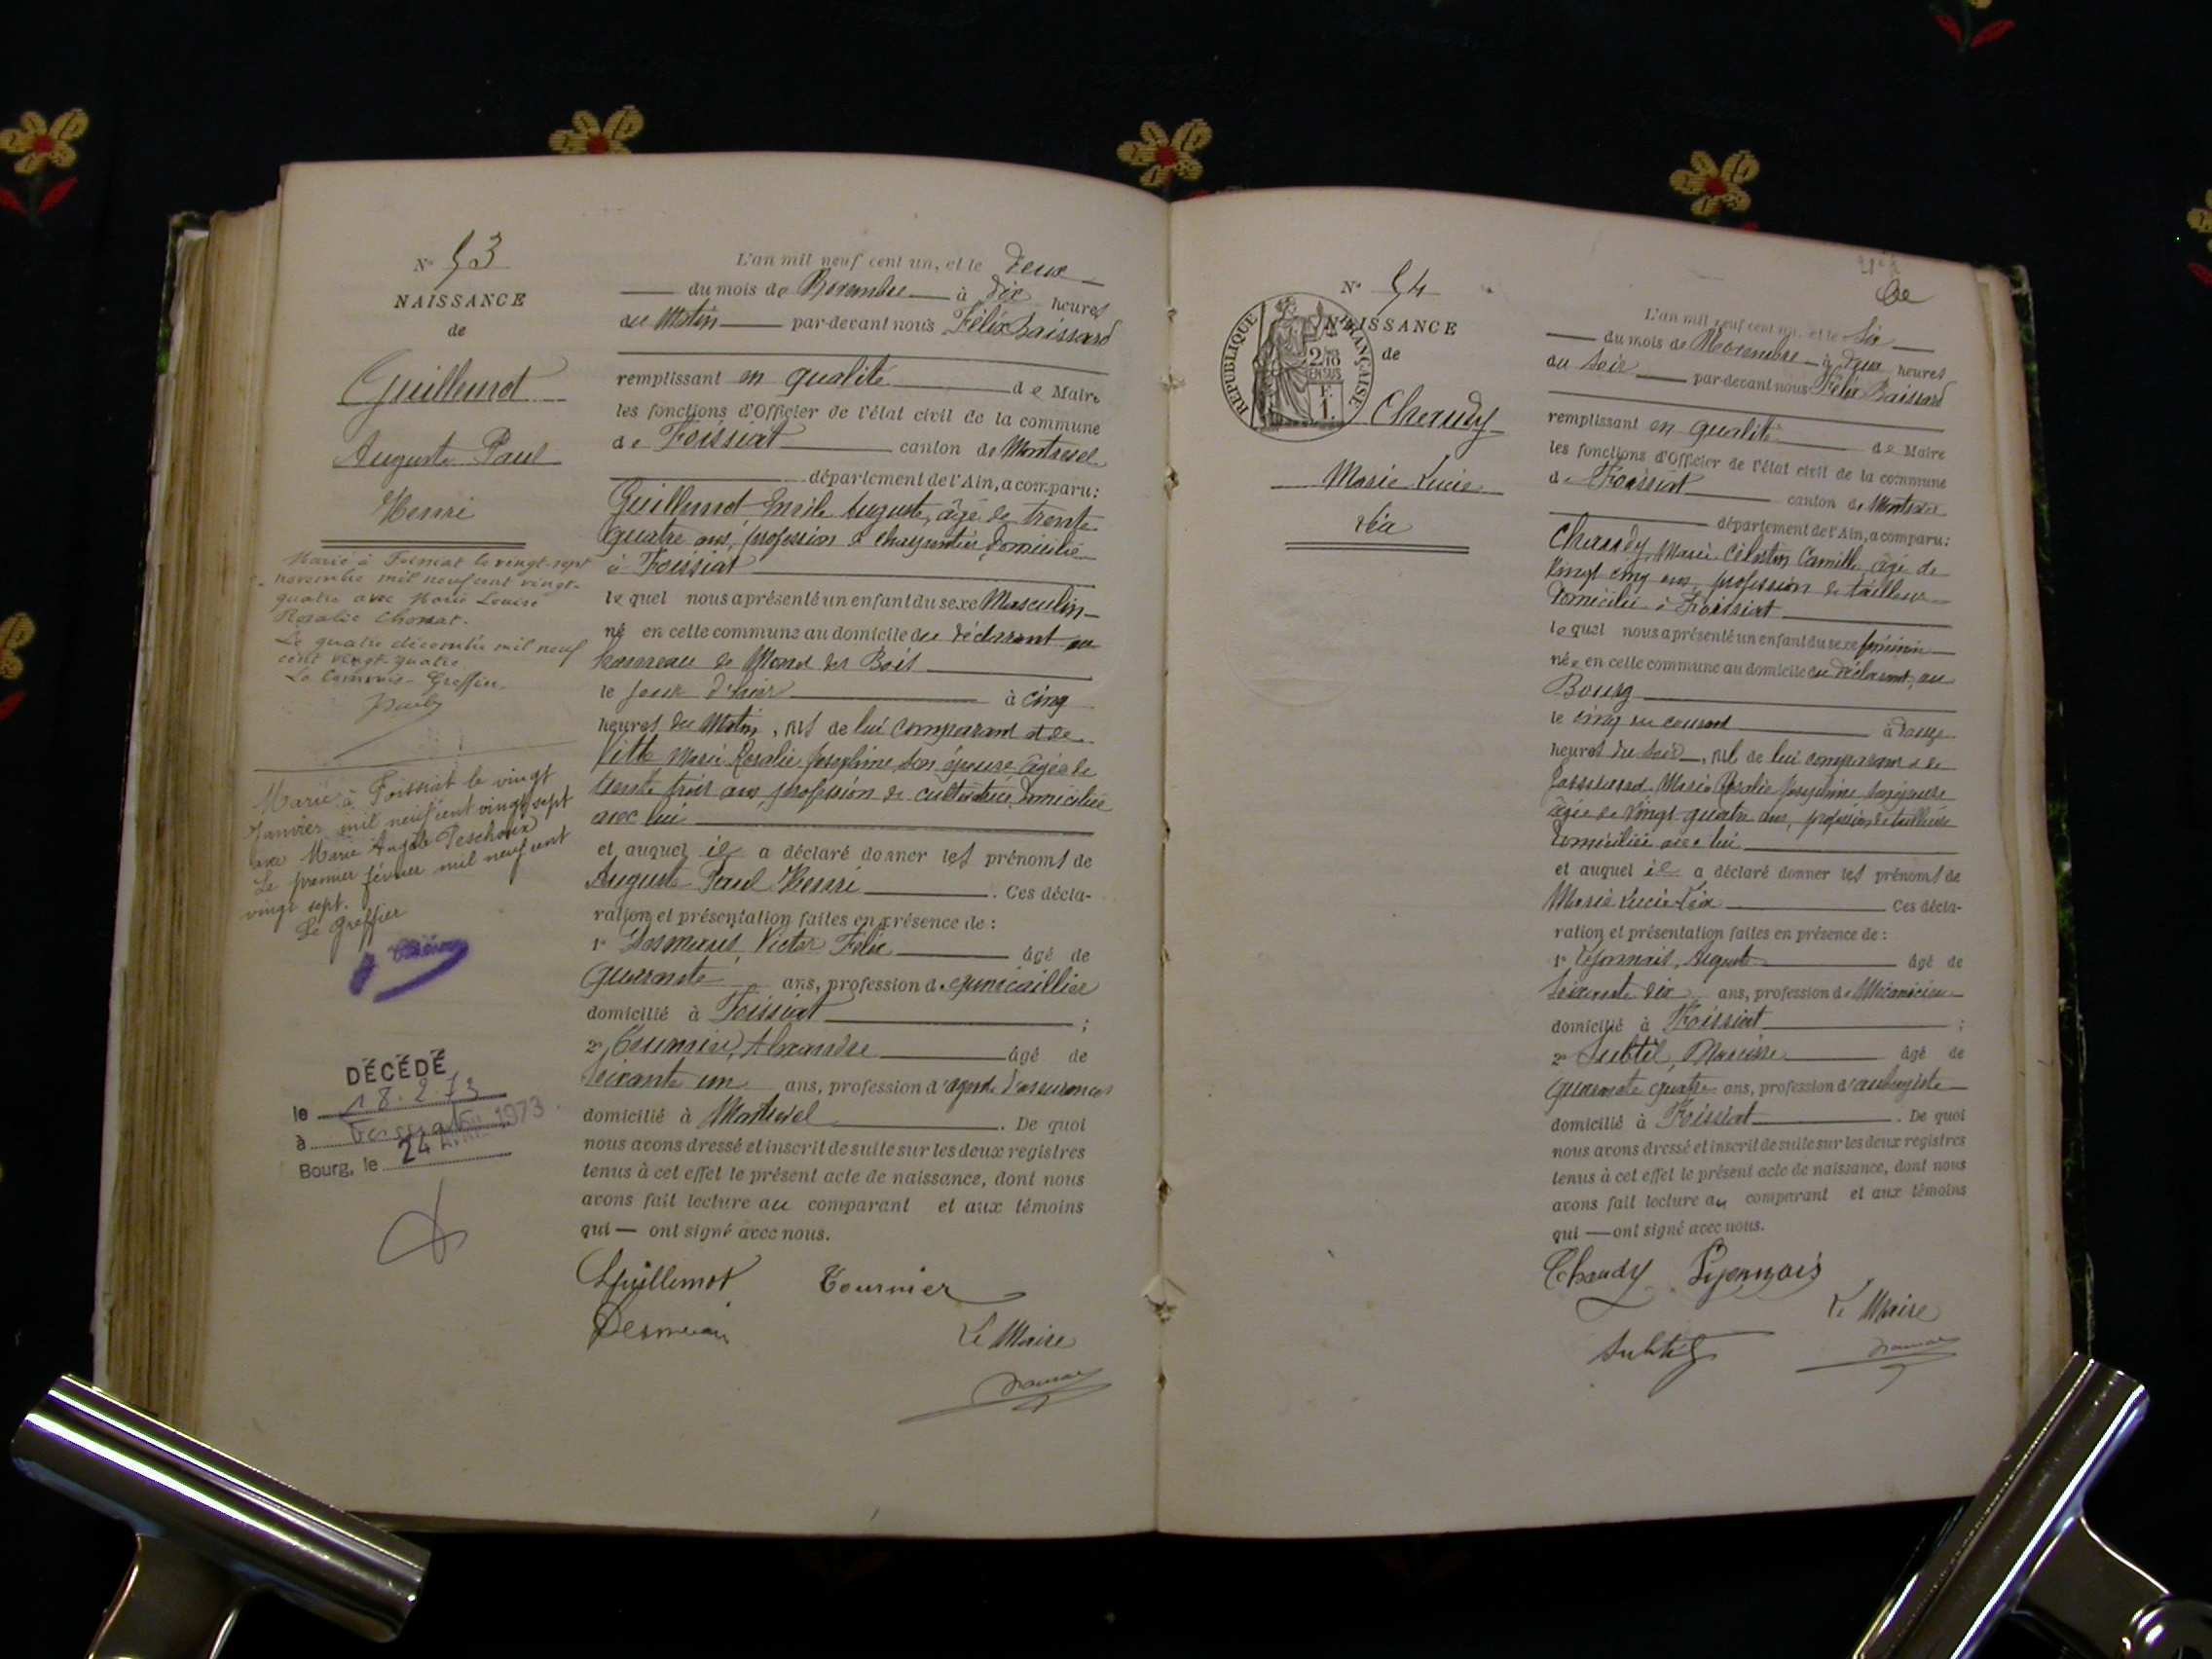 N° 53
NAISSANCE
de
Guillemot
Auguste Paul
Henri
Marié à Foissiat le vingt-sept
novembre mil neuf cent vingt-
quatre avec Marie Louise
Rosalie Chossat.
Le quatre décembre mil neuf
cent vingt-quatre
Le Commis-Greffier
Marié à Foissiat le vingt
Janvier mil neuf cent vingt sept
avec Marie Angèle Peschoux
Le premier février mil neuf cent
vingt sept.
Le Greffier
DÉCÉDÉ
le 18.2.73
à
Bourg, le 24 1973
L'an mil neuf cent un, et le deux
du mois de Novembre à dix heures
du Matin par-devant nous Félix Baissard
remplissant en qualité de Maire
les fonctions d'Officier de l'état civil de la commune
de Foissiat canton de Montrevel
département de l'Ain, a comparu:
Guillemot Emile Auguste, âgé de trente
quatre ans, profession de charpentier, domicilié
à Foissiat
lequel nous a présenté un enfant du sexe Masculin
né en cette commune au domicile du déclarant au
hameau de des Bois
le jour d'hier à cinq
heures du Matin, fils de lui comparant et de
Vitte Marie Rosalie Joséphine, son épouse, âgée de
trente trois ans, profession de cultivatrice, domiciliée
avec lui
et auquel il a déclaré donner les prénoms de
Auguste Paul Henri. Ces décla-
ration et présentation faites en présence de:
1° Desmaris, Victor Félix âgé de
quarante ans, profession de quincaillier
domicilié à Foissiat;
2° Tournier, Alexandre âgé de
soixante un ans, profession d'agent d'assurances
domicilié à Montrevel. De quoi
nous avons dressé et inscrit de suite sur les deux registres
tenus à cet effet le présent acte de naissance, dont nous
avons fait lecture au comparant et aux témoins
qui — ont signé avec nous.
Guillemot Tournier
Le Maire
N° 54
RÉPUBLIQUE FRANÇAISE
NAISSANCE
de
Chaudy
Marie Lucie
Léa
L'an mil neuf cent un, et le six
du mois de Novembre à deux heures
du soir par-devant nous Félix Baissard
remplissant en qualité de Maire
les fonctions d'Officier de l'état civil de la commune
de Foissiat canton de Montrevel
département de l'Ain, a comparu:
Chaudy, Marie Célestin Camille, âgé de
vingt cinq ans, profession de tailleur
domicilié à Foissiat
lequel nous a présenté un enfant du sexe féminin
née en cette commune au domicile du déclarant, au
Bourg
le cinq du courant à douze
heures du soir, fil de lui comparant et de
Marie Rosalie Joséphine, son épouse
âgée de vingt quatre ans, profession de tailleuse
domiciliée avec lui
et auquel il a déclaré donner les prénoms de
Marie Lucie Léa Ces décla-
ration et présentation faites en présence de:
1° Lyonnais, Auguste âgé de
soixante dix ans, profession de Mécanicien
domicilié à Foissiat;
2° Subtil, Narcisse âgé de
quarante quatre ans, profession d'aubergiste
domicilié à Foissiat. De quoi
nous avons dressé et inscrit de suite sur les deux registres
tenus à cet effet le présent acte de naissance, dont nous
avons fait lecture au comparant et aux témoins
qui — ont signé avec nous.
Chaudy Lyonnais
Le Maire
Subtil